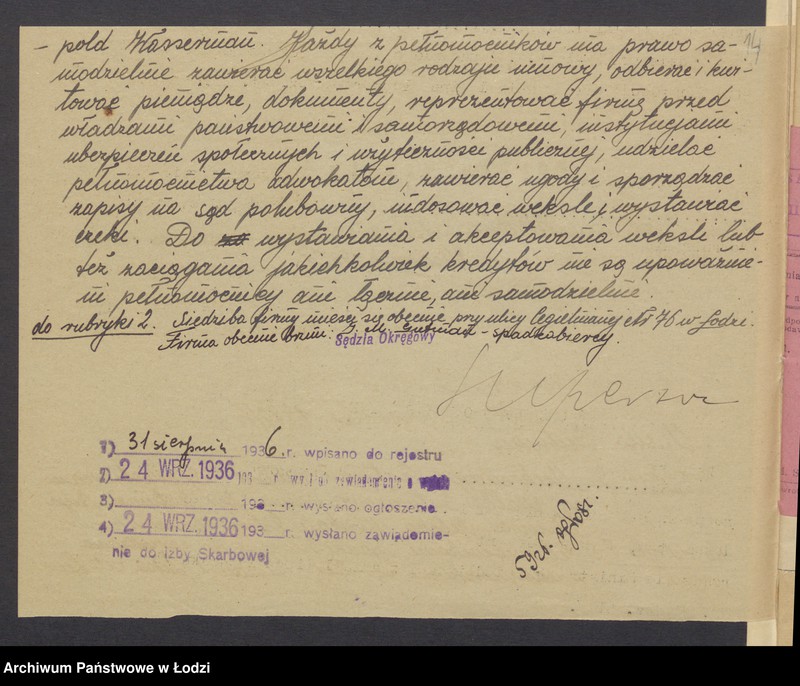 14
– pold Wasserman. Każdy z pełnomocników ma prawo sa-
modzielnie zawierać wszelkiego rodzaju umowy, odbierać i kwi-
tować pieniądze, dokumenty, reprezentować firmę przed
władzami państwowemi i samorządowemi, instytucjami
ubezpieczeń społecznych i użyteczności publicznej, udzielać
pełnomocnictwa adwokatom, zawierać ugody i sporządzać
zapisy na sąd polubowny, indosować weksle i wystawiać
czeki. Do wystawiania i akceptowania weksli lub
też zaciągania jakichkolwiek kredytów nie są upoważnie-
ni pełnomocnicy ani łącznie, ani samodzielnie.
do rubryki 2. Siedziba firmy mieści się obecnie przy ulicy Cegielnianej № 76 w Łodzi.
Firma obecnie brzmi: - spadkobiercy.
Sędzia Okręgowy
1) 31 sierpnia 1936 r. wpisano do rejestru
2) 24 WRZ. 1936 193 r. zawiadomienie o
3) 193 r. wysłano ogłoszenie
4) 24 WRZ. 1936 193 r. wysłano zawiadomie-
nie do Izby Skarbowej
Archiwum Państwowe w Łodzi